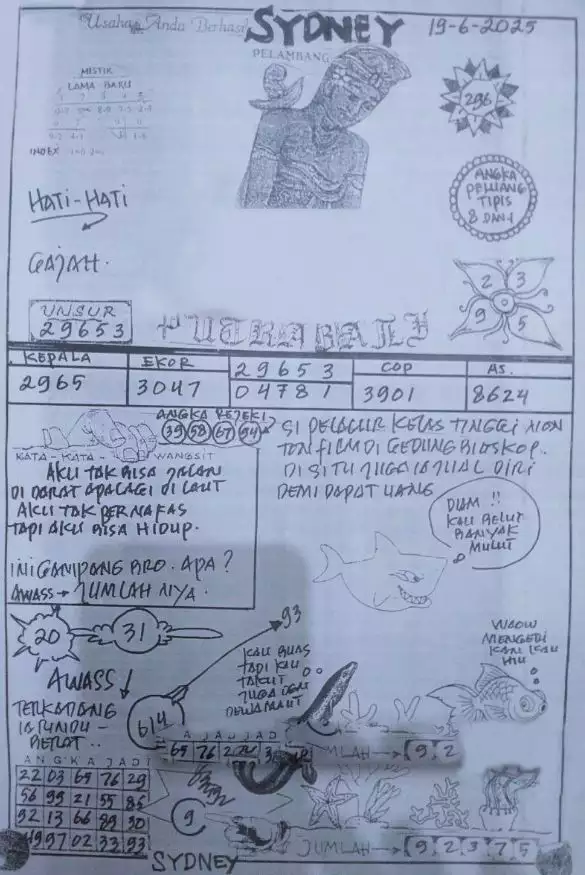 Usaha Anda Berhasil
SYDNEY
19-6-2025
PELAMBANG
MISTIK
LAMA BARU
INDEX
296
ANGKA
PELUANG
TIPIS
8 DAN 1
HATI-HATI
GAJAH.
2 3
9 5
UNSUR
29653
PUTRA BALI
KEPALA
2965
EKOR
3047
29653
04781
COP
3901
AS.
8624
ANGKA REJEKI
39 58 67 94
KATA-KATA-WANGSIT
AKU TAK BISA JALAN
DI DARAT APALAGI DI LAUT
AKU TAK BERNAFAS
TAPI AKU BISA HIDUP.
INI GAMPANG BRO. APA?
AWASS → JUMLAH NYA.
SI PELACUR KELAS TINGGI NON
TON FILM DI GEDUNG BIOSKOP.
DI SITU JUGA IA JUAL DIRI
DEMI DAPAT UANG
DIAM !!
KAU BELUT
BANYAK
MULUT
20
31
93
AWASS
TERKADANG
IA RINDU-
BERAT..
614
KAU BUAS
TAPI KAU
TAKUT
JUGA DGN
DEWA MAUT
WAOW
MENGERI
KAN KAU
HIU
A J A D I J A D
65 76 2
JUMLAH → 9 2
ANGKA JADI
22 03 65 76 29
56 99 21 55 85
92 13 66 89 30
49 97 02 33 93
9
JUMLAH → 9 2 3 7 5
SYDNEY